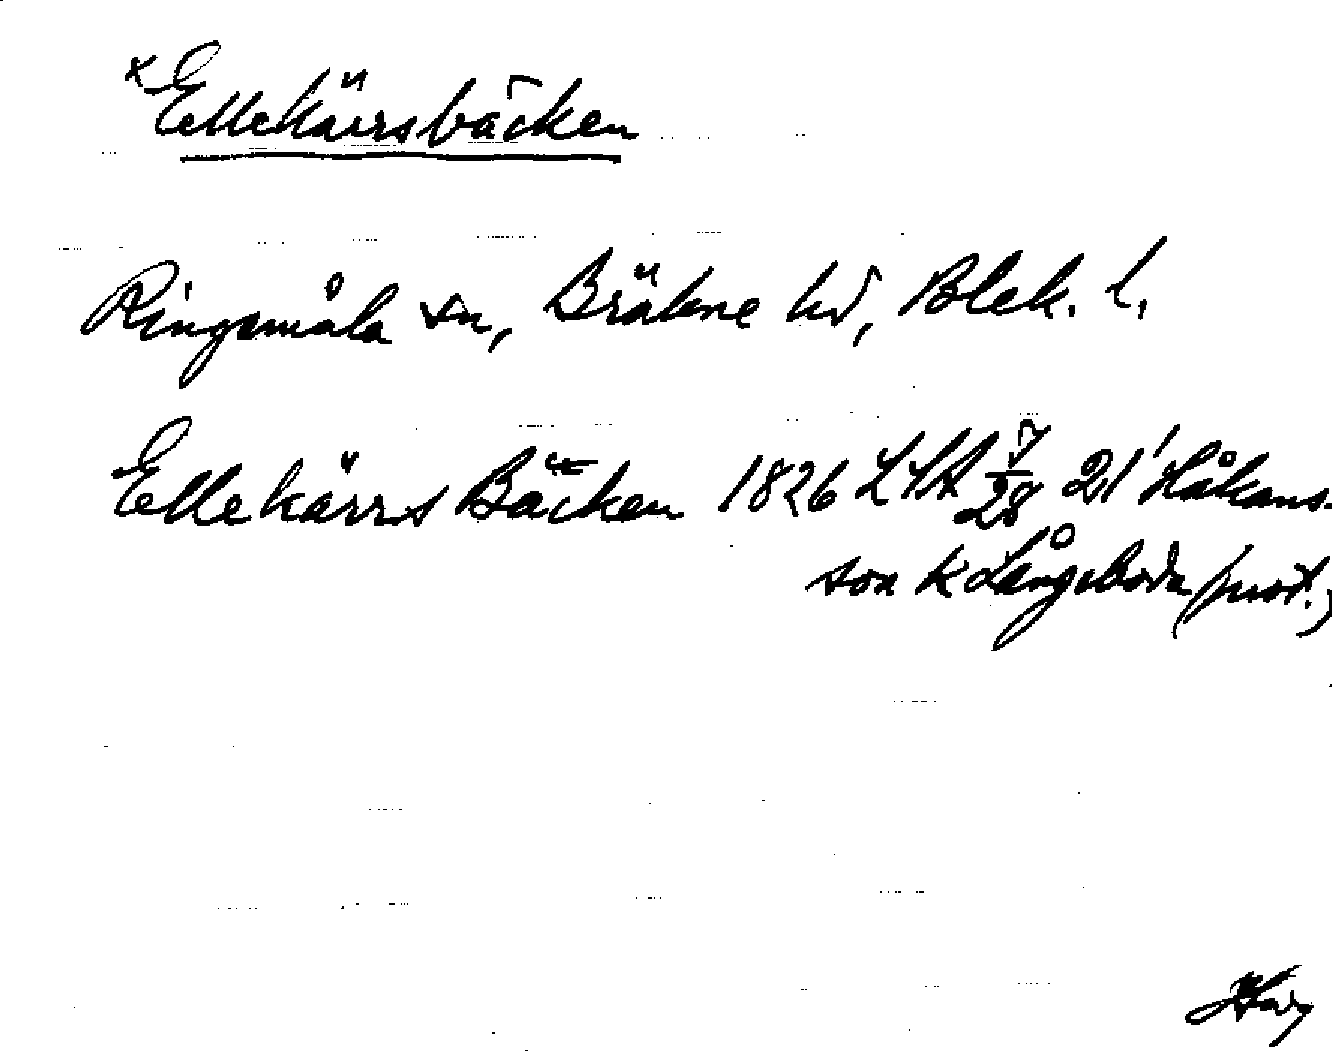 x Ellekärrsbäcken
Ringamåla sn, Bräkne hd, Blek. l.
Ellekärrs Bäcken 1826 LSA 7/28 21 Håkans-
son k Långeboda (prot.)